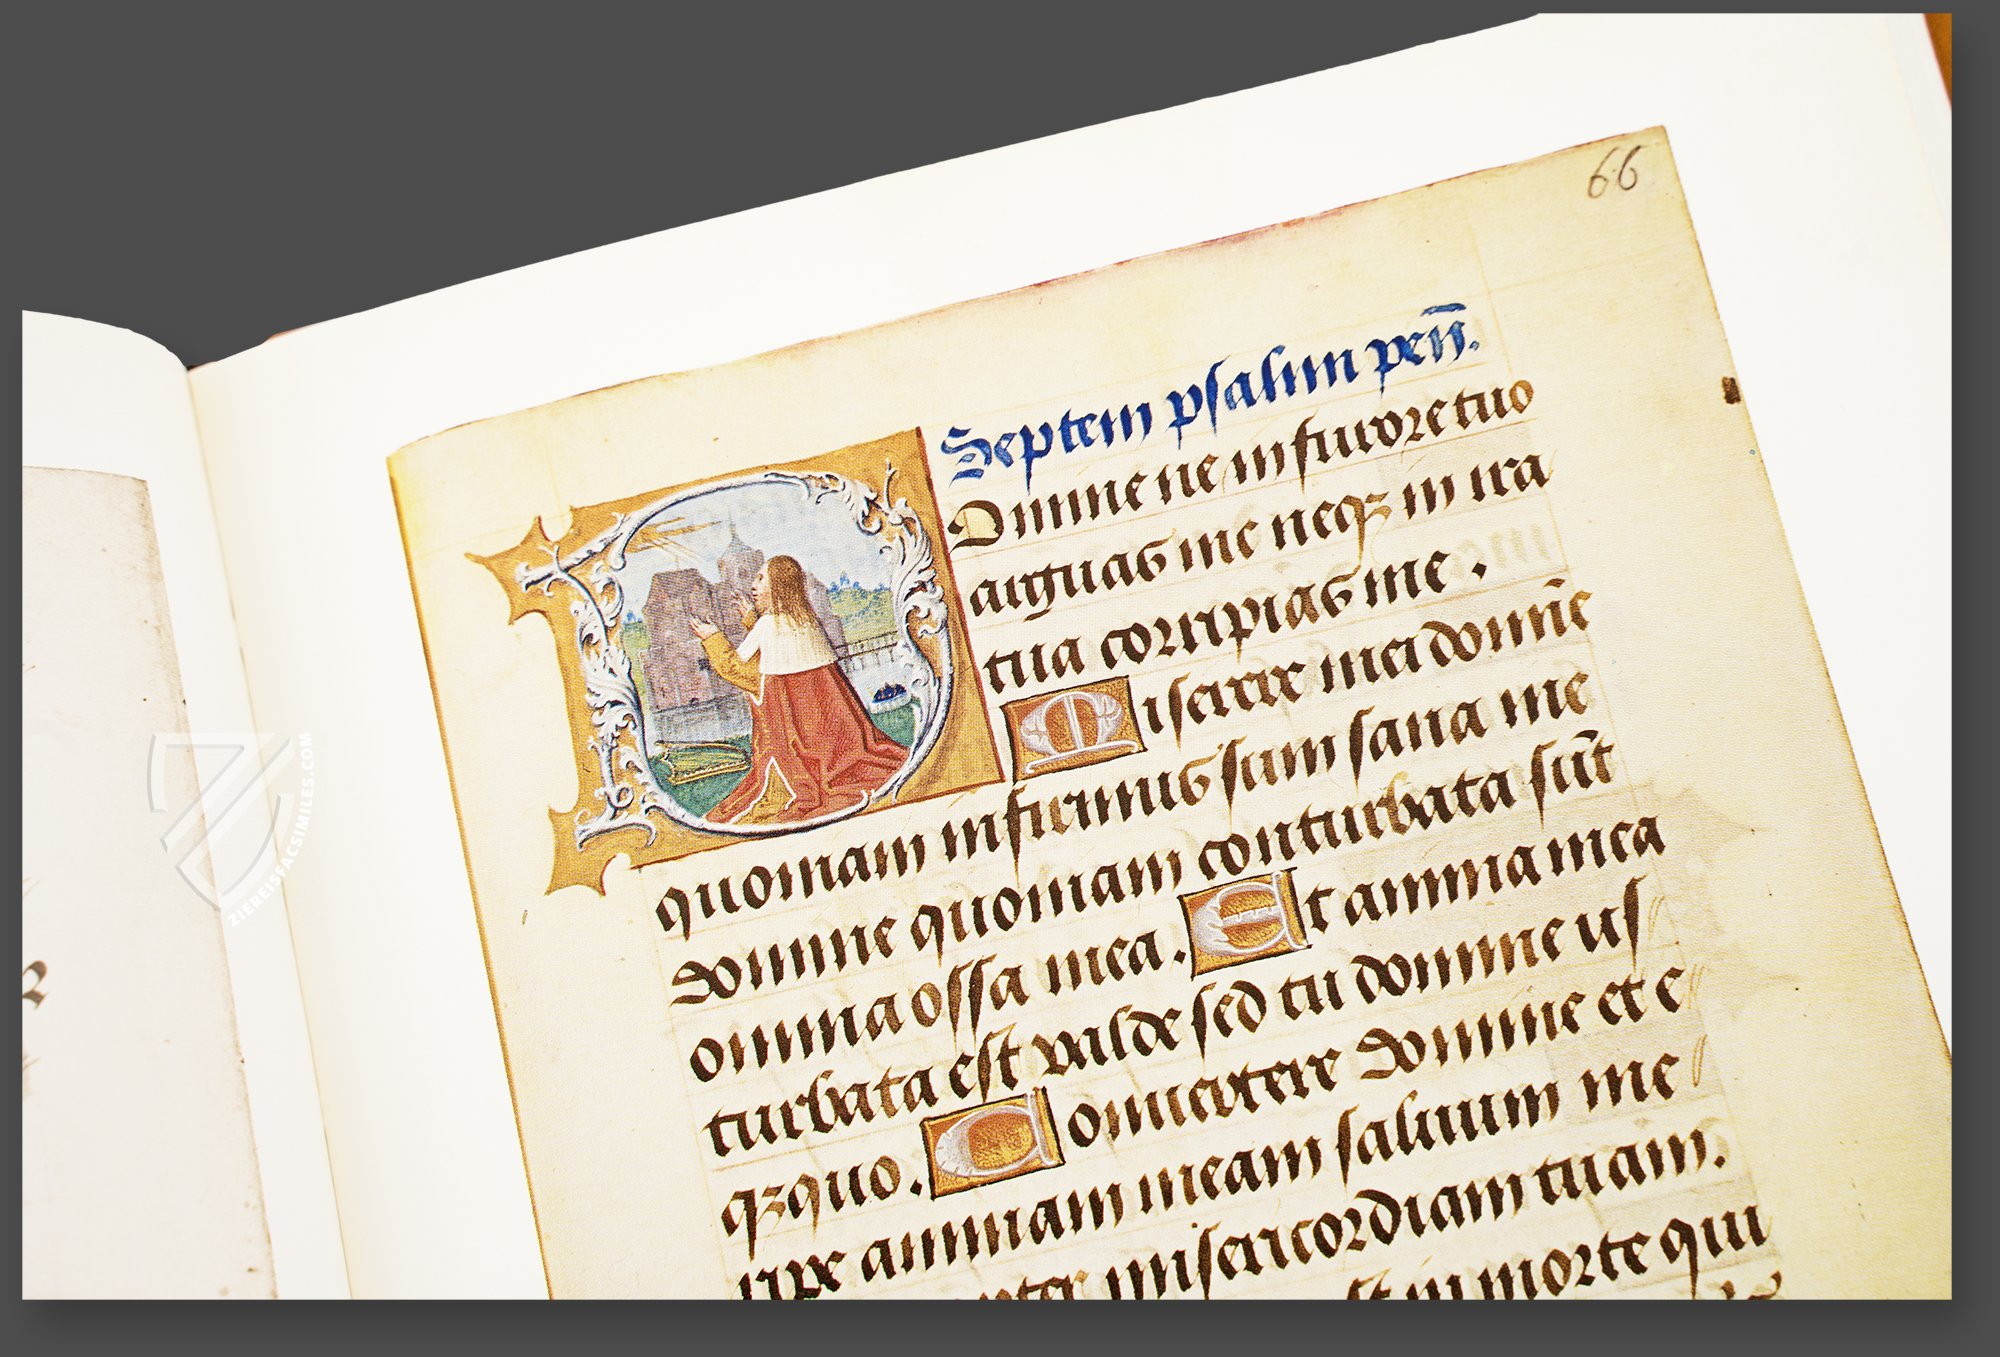 66
Septem psalmi peñ.
Domine ne in furore tuo
arguas me neqꝫ in ira
tua corripias me .
Miserere mei domiñe
quoniam infirmus sum sana me
domine quoniam conturbata sūt
omnia ossa mea . Et anima mea
turbata est valde sed tu domine us
qꝫquo . Conuertere domine et e
ripe animam meam saluum me
misericordiam tuam .
in morte qui
ZIEREISFACSIMILES.COM